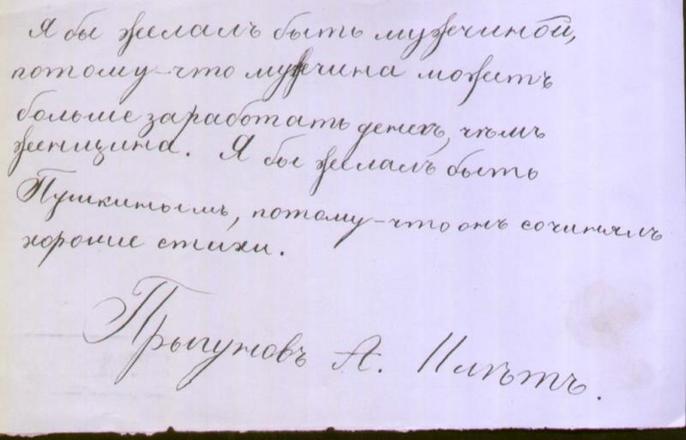 Я бы желалъ быть мужчиной,
потому-что мужчина можетъ
больше заработать денехъ, чѣмъ
женщина. Я бы желалъ быть
Пушкинымъ, потому-что онъ сочинялъ
хорошие стихи.
Прыгуновъ А. 11 лѣтъ.